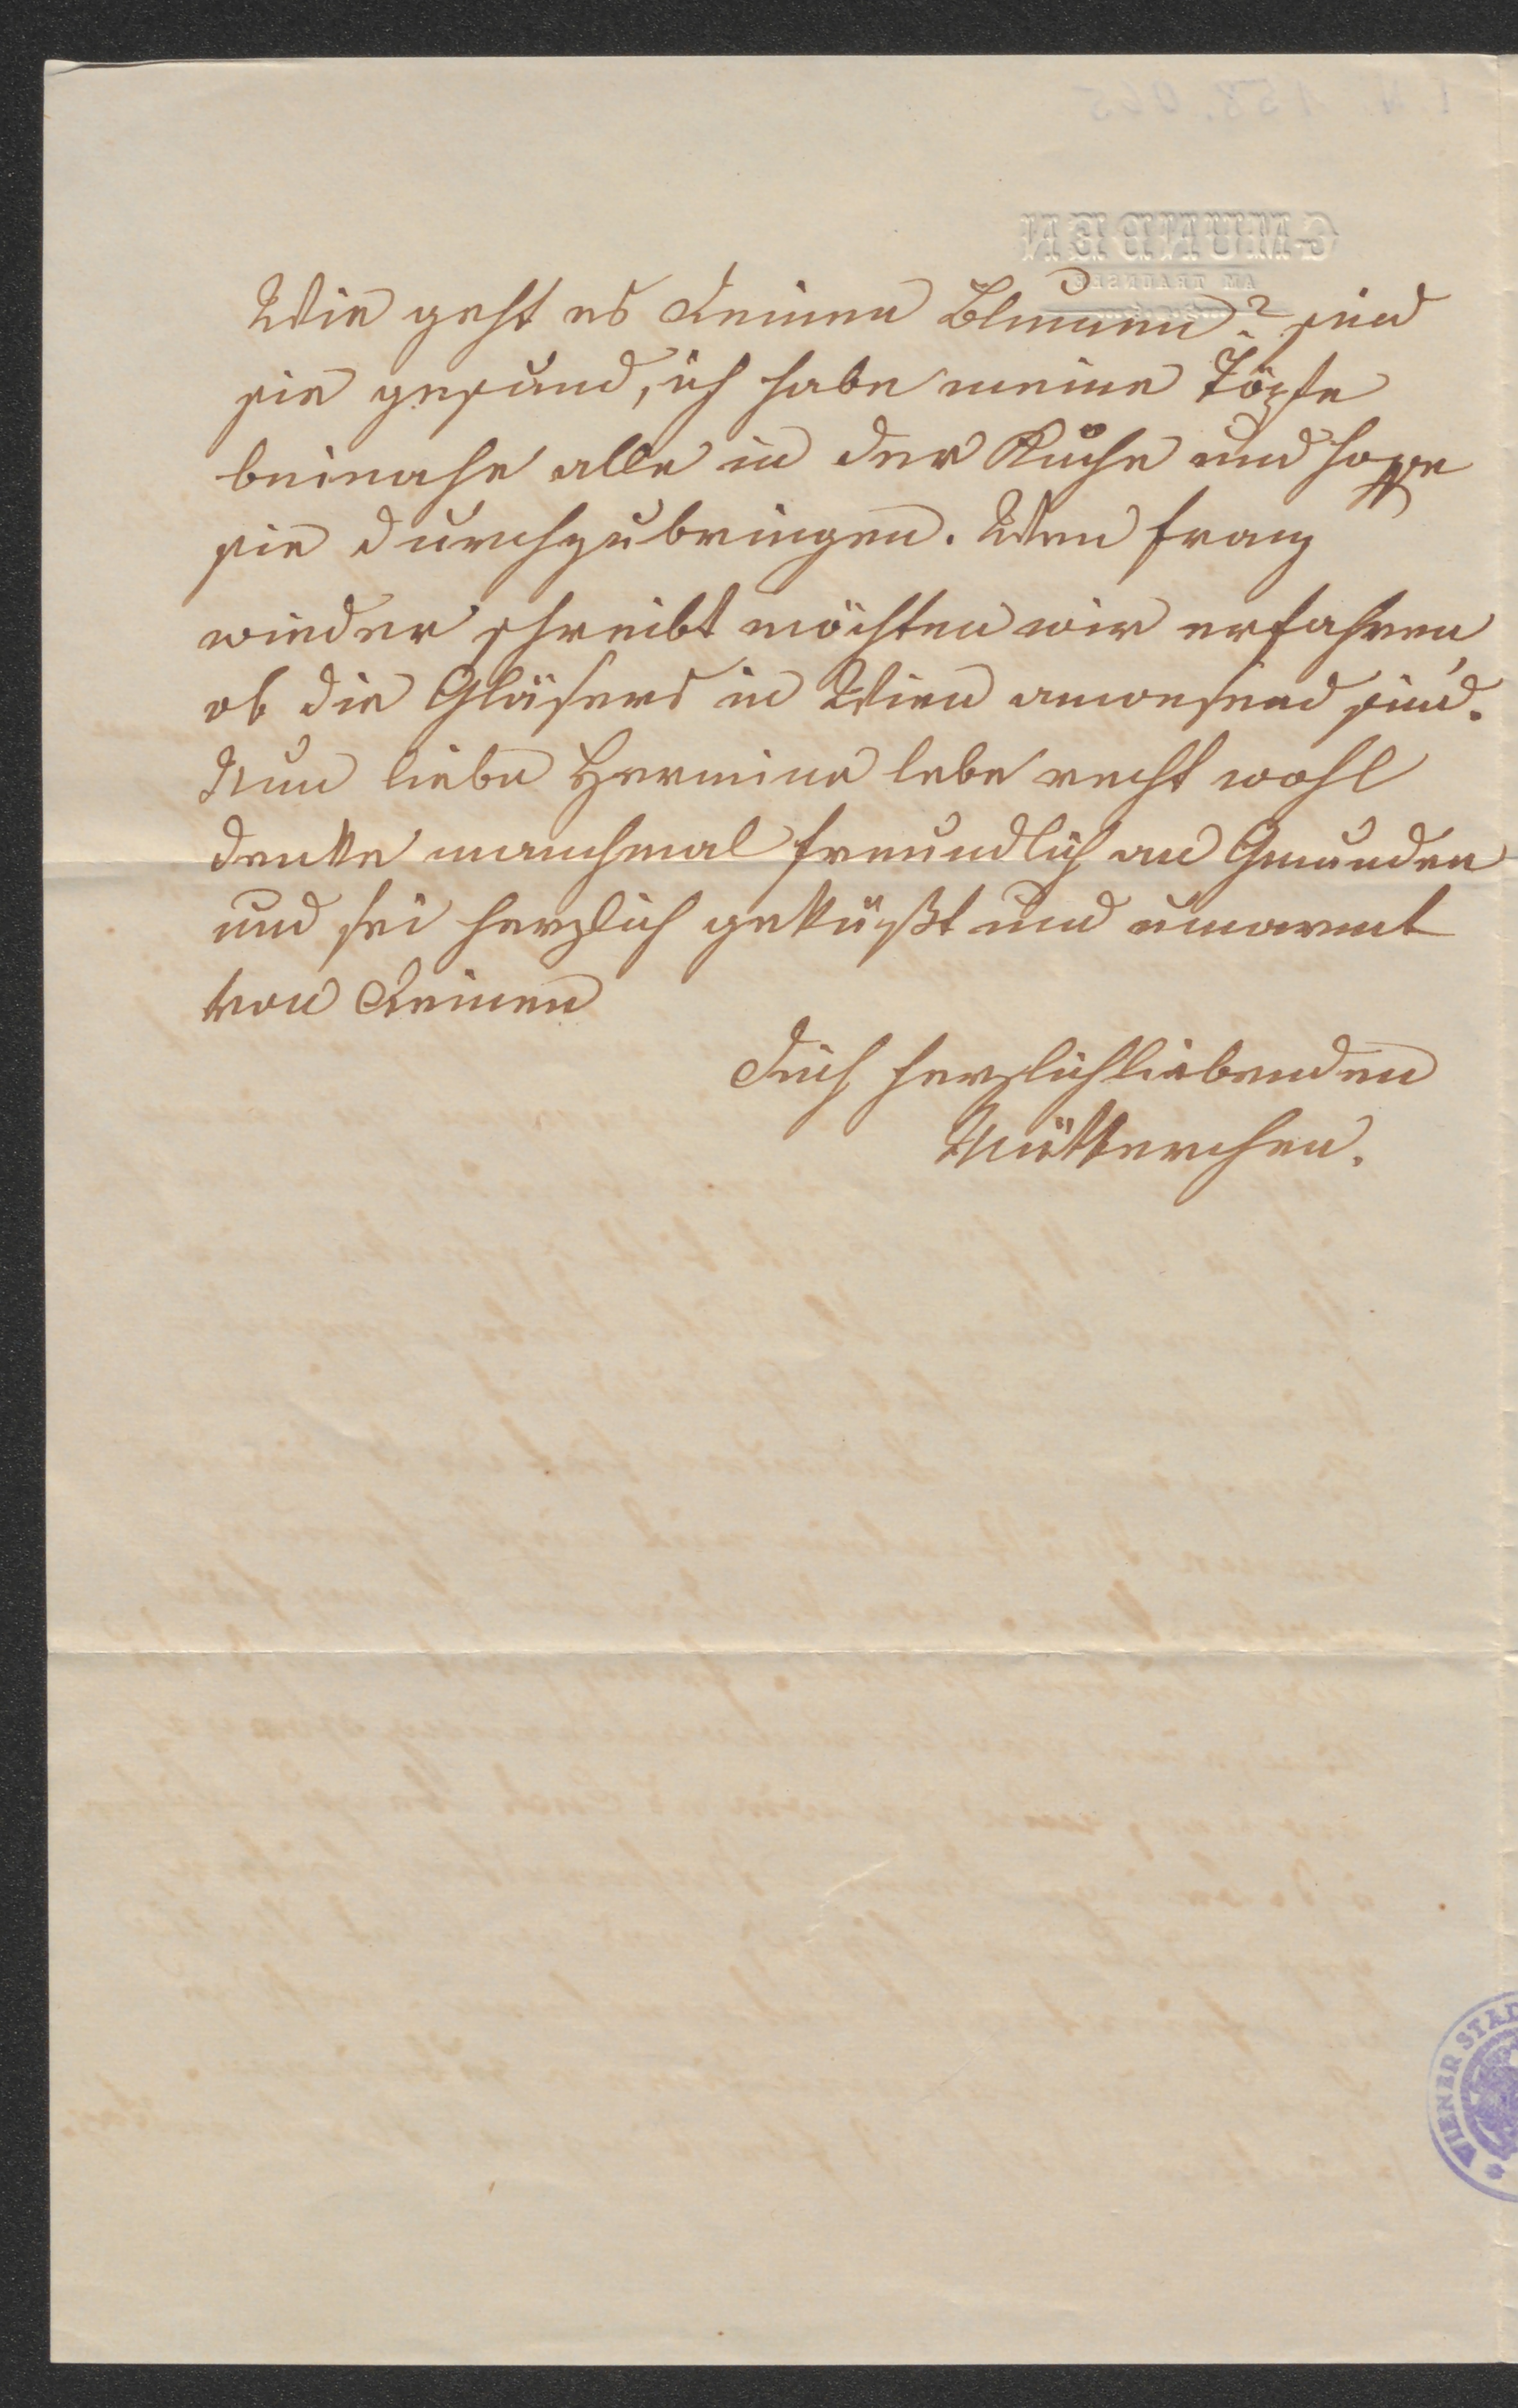 Wie geht es Deinen Blumen? sind
sie gesund, ich habe meine Töpfe
beinahe alle in der Küche und hoffe
sie durchzubringen. Wen Franz
wieder schreibt möchten wir erfahren
ob die Gläsers in Wien anwesend sind.
Nun liebe Hermine lebe recht wohl
denke manchmal freundlich an Gmunden
und sei herzlich geküßt und umarmt
von Deinen
Dich herzlichliebenden
Mütterchen.
GMUNDEN
AM TRAUNSEE
WIENER STAD